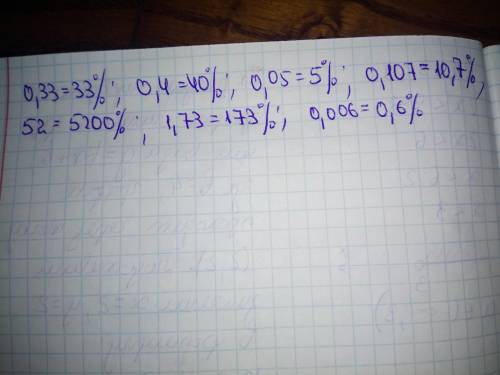 0,33=33%; 0,4=40%; 0,05=5%; 0,107=10,7%;
52=5200%; 1,73=173%; 0,006=0,6%